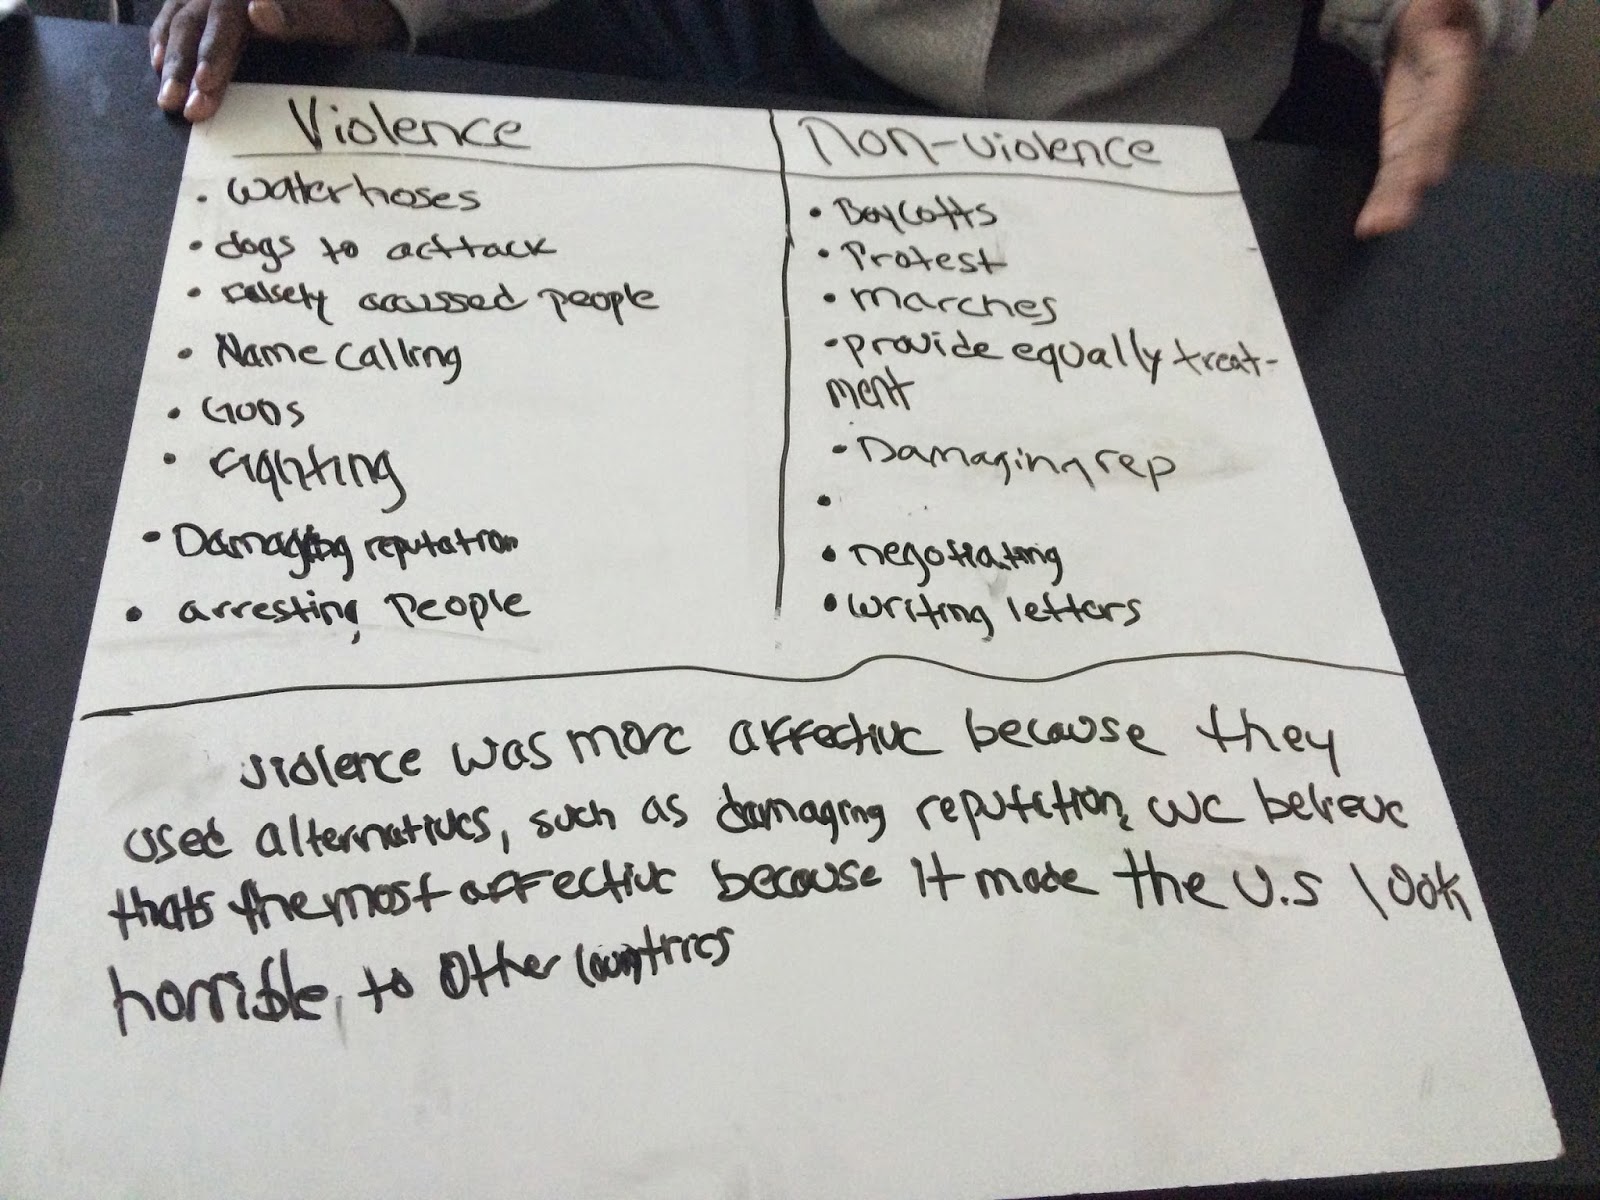 Violence
• water hoses
• dogs to acttack
• falsely accussed people
• Name calling
• Guns
• fighting
• Damaging reputation
• arresting people
Non-violence
• Boycotts
• Protest
• marches
• provide equally treat-
ment
• Damaging rep
•
• negotiating
• writing letters
violence was more affective because they
used alternatives, such as damaging reputation, we believe
thats the most affective because it made the U.S look
horrible, to other countries